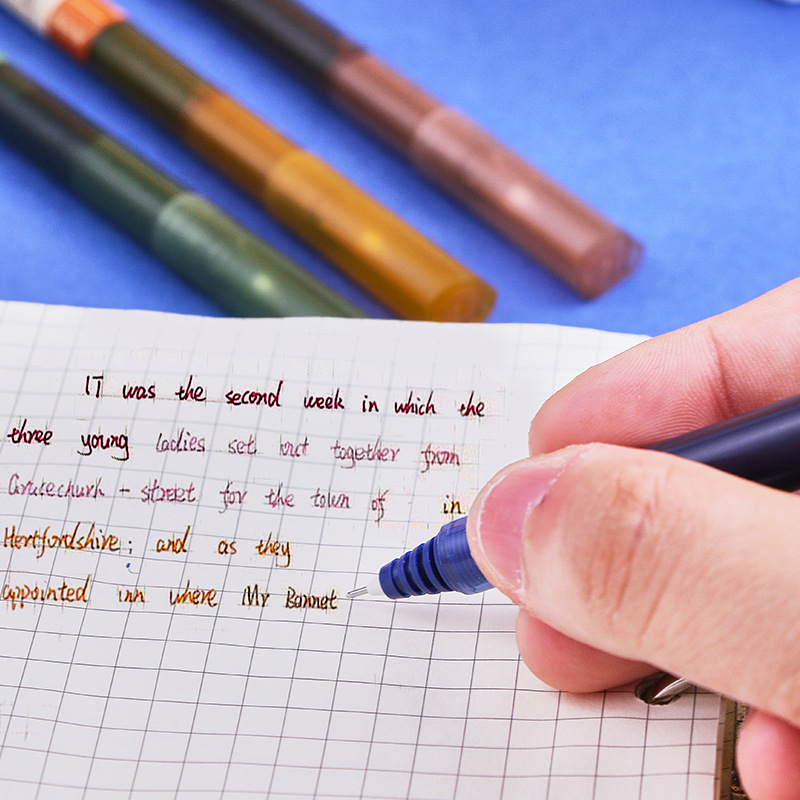 IT was the second week in which the
three young ladies set out together from
Gracechurh - street for the town of in
Hertfordshire; and as they
appointed inn where Mr Bannet